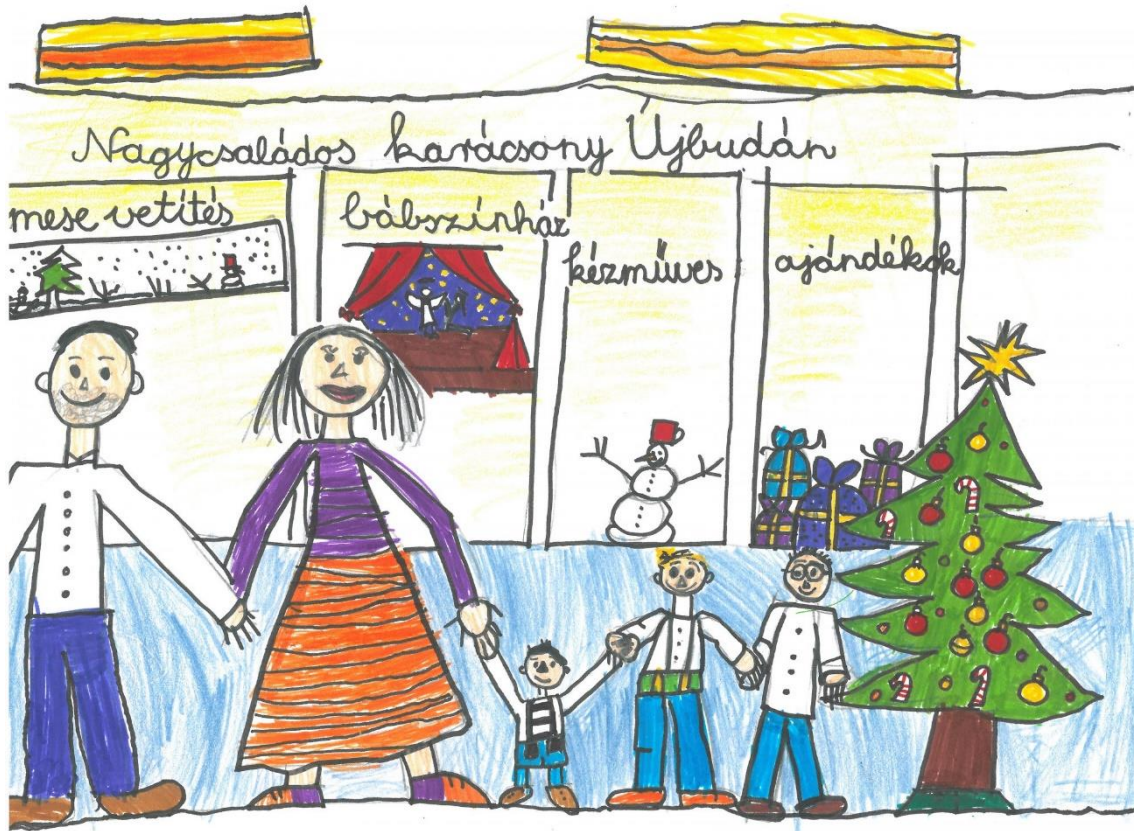 Nagycsaládos karácsony Újbudán
mese vetítés
bábszínház
kézműves
ajándékok